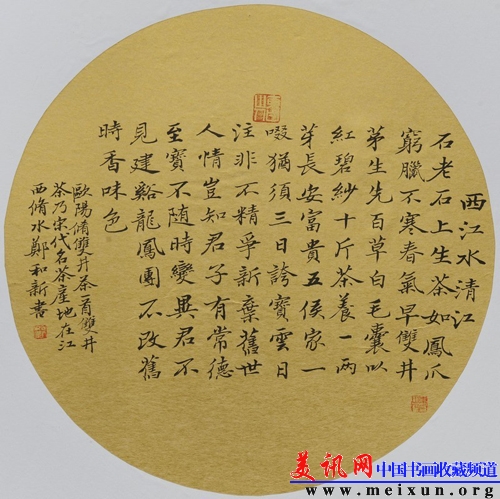 西江水清江
石老石上生茶如鳳爪
窮臘不寒春氣早雙井
芽生先百草白毛囊以
紅碧紗十斤茶養一兩
芽長安富貴五侯家一
啜猶須三日誇寶雲日
注非不精爭新棄舊世
人情豈知君子有常德
至寶不隨時變異君不
見建谿龍鳳團不改舊
時香味色
歐陽脩雙井茶一首雙井
茶乃宋代名茶產地在江
西脩水鄭和新書
美讯网 中国书画收藏频道
www.meixun.org